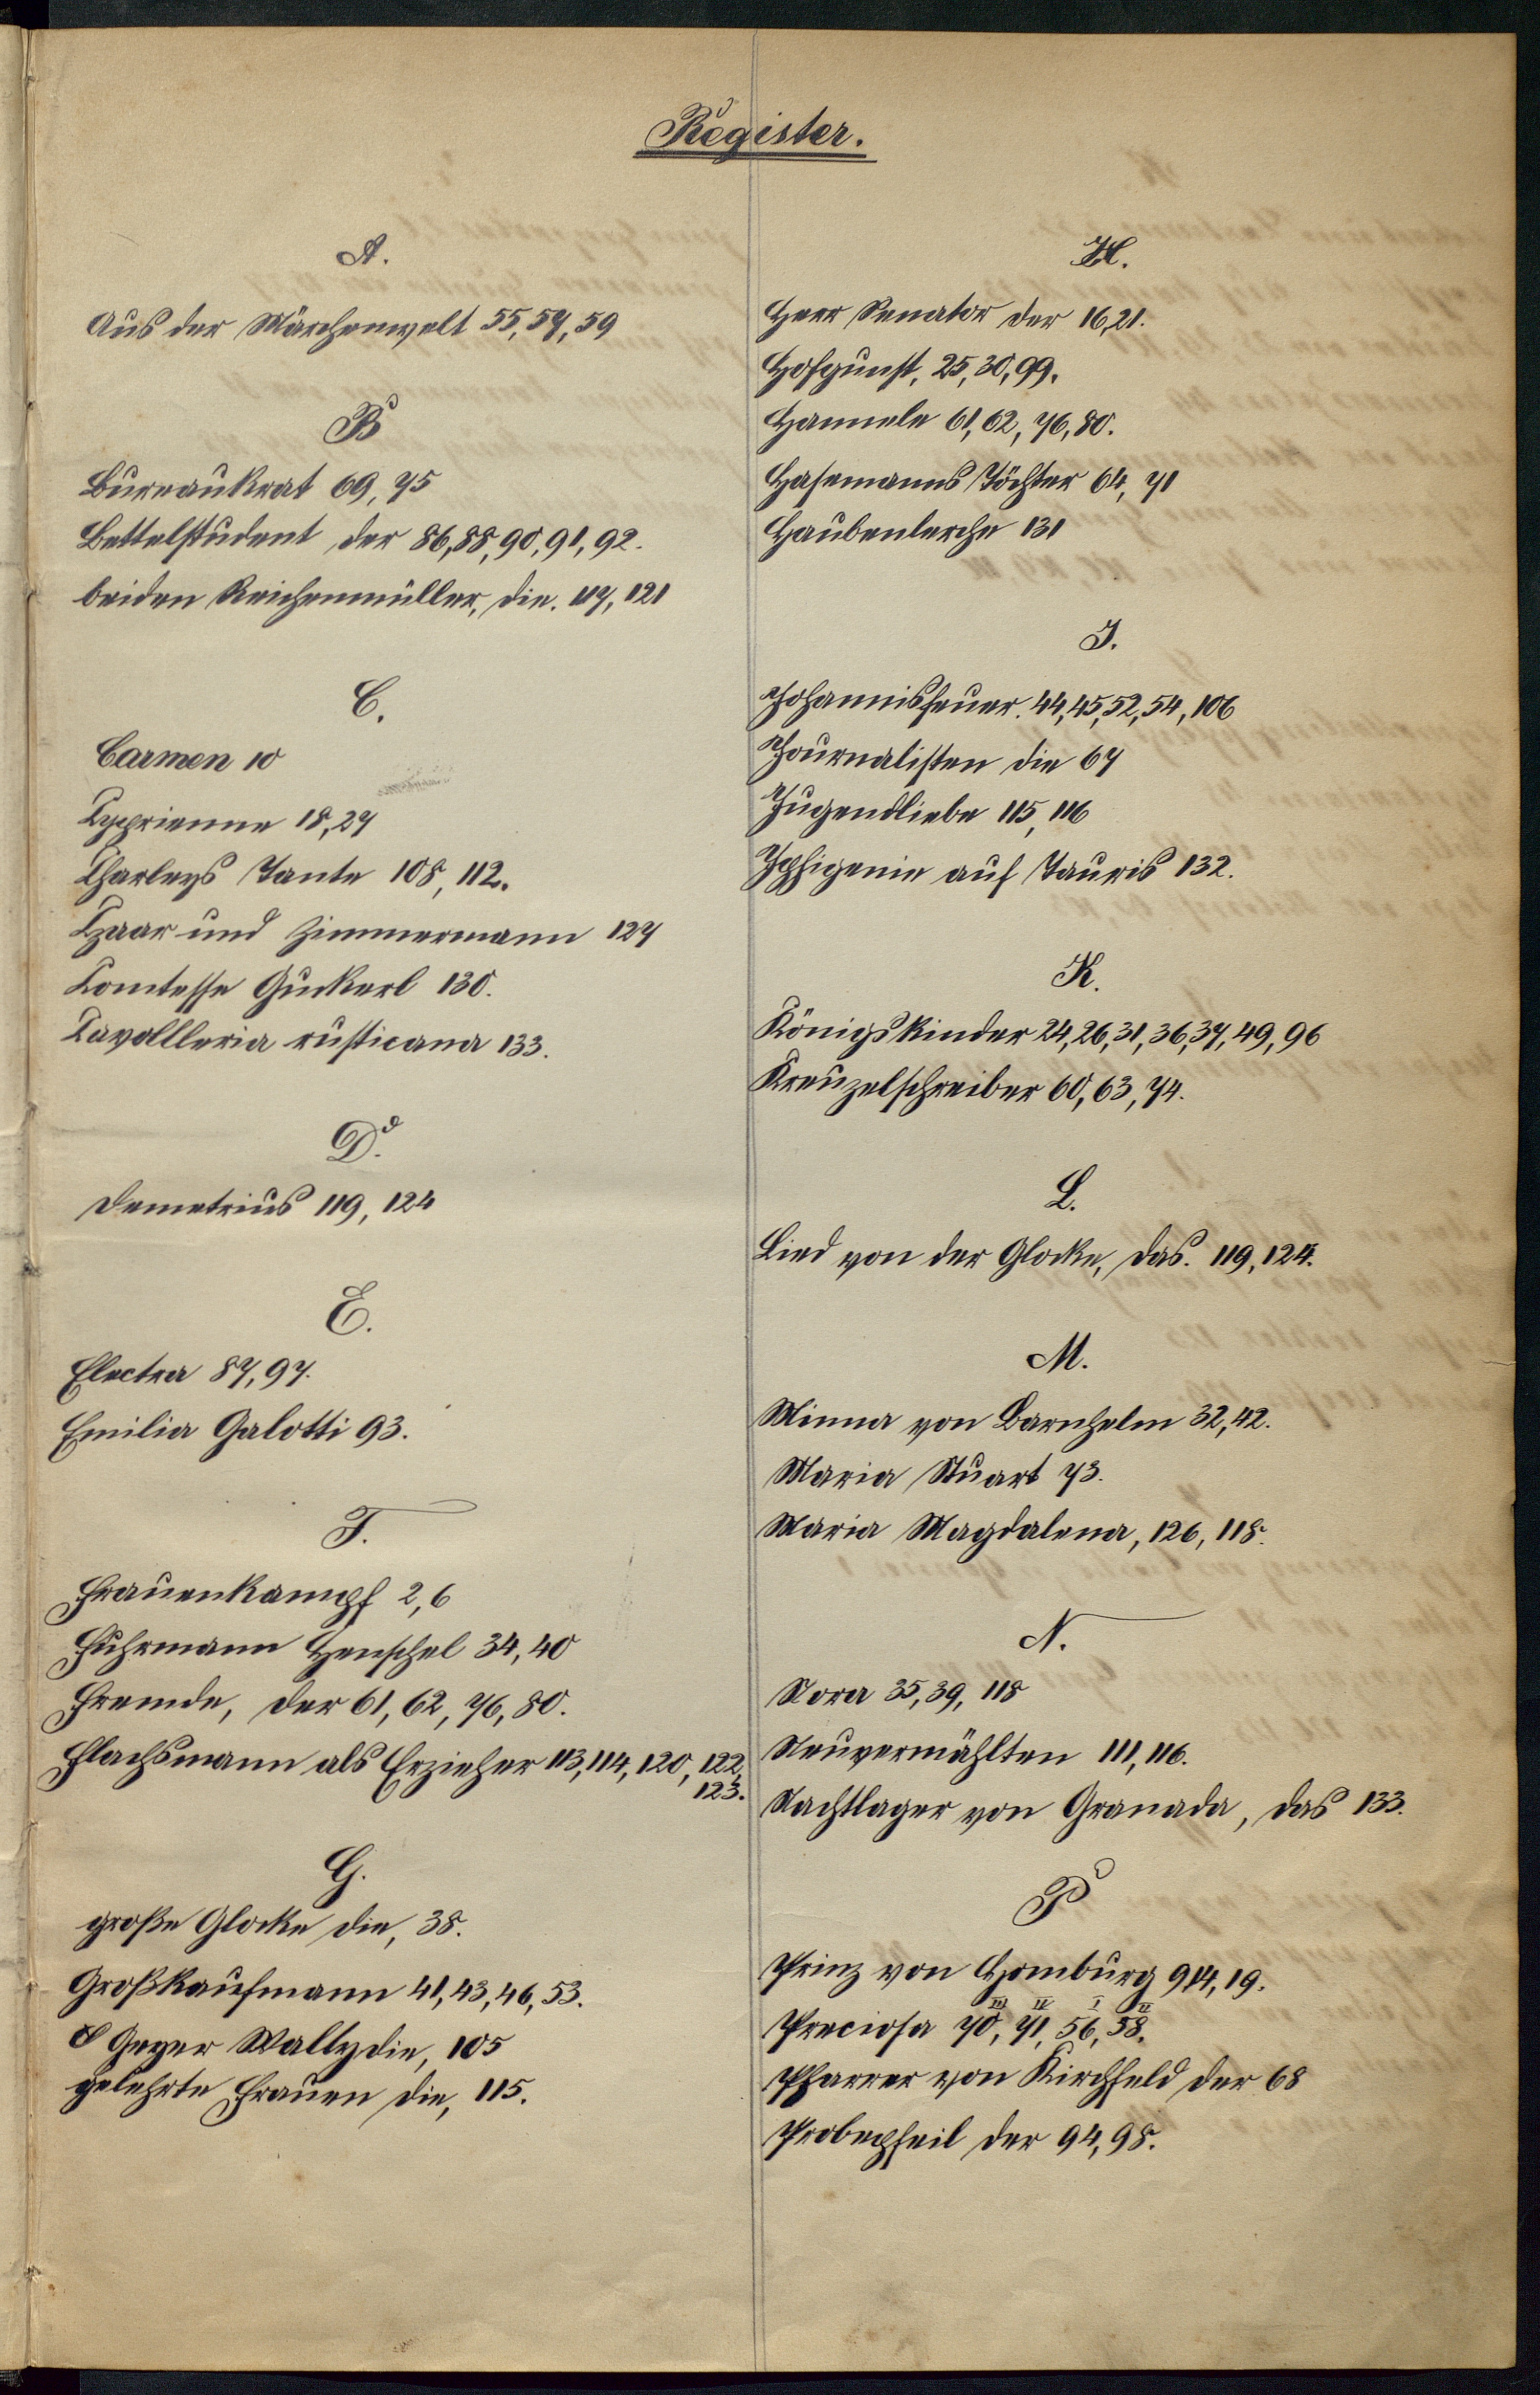 Register.
A.
Aus der Märchenwelt 55, 57, 59
B
Bureaukrat 69, 75
Bettelstudent der 86, 88, 90, 91, 92.
beiden Reichenmüller, die. 117, 121
C.
Carmen 10
Cyprienne 18, 27
Charleys Tante 108, 112.
Czaar und Zimmermann 127
Comtesse Guckerl 130.
Cavallleria rusticana 133.
D.
Demetrius 119, 124
E.
Electra 87, 97.
Emilia Galotti 93.
F.
Frauenkampf 2, 6
Fuhrmann Henschel 34, 40
Fremde, der 61, 62, 76, 80.
Flachsmann als Erzieher 113, 114, 120, 122,
123.
G.
große Glocke die, 38.
Großkaufmann 41, 43, 46, 53.
Geyer Wally die, 105
gelehrte Frauen die, 115.
H.
Herr Senator der 16, 21.
Hofgunst, 25, 30, 99.
Hannele 61, 62, 76, 80.
Hasemanns Töchter 64, 71
Haubenlerche 131
J.
Johannisfeuer. 44, 45, 52, 54, 106
Journalisten die 67
Jugendliebe 115, 116
Iphigenie auf Tauris 132.
K.
Königskinder 24, 26, 31, 36, 37, 49, 96
Kreuzelschreiber 60, 63, 74.
L.
Lied von der Glocke, das. 119, 124.
M.
Minna von Barnhelm 32, 42.
Maria Stuart 73.
Maria Magdalena, 126, 118.
N.
Nora 35, 39, 118
Neuvermählten 111, 116.
Nachtlager von Granada, das 133.
P
Prinz von Homburg 9 14, 19.
III II I II
Preciosa 70, 71, 56, 58.
Pfarrer von Kirchfeld der 68
Probepfeil der 94, 98.